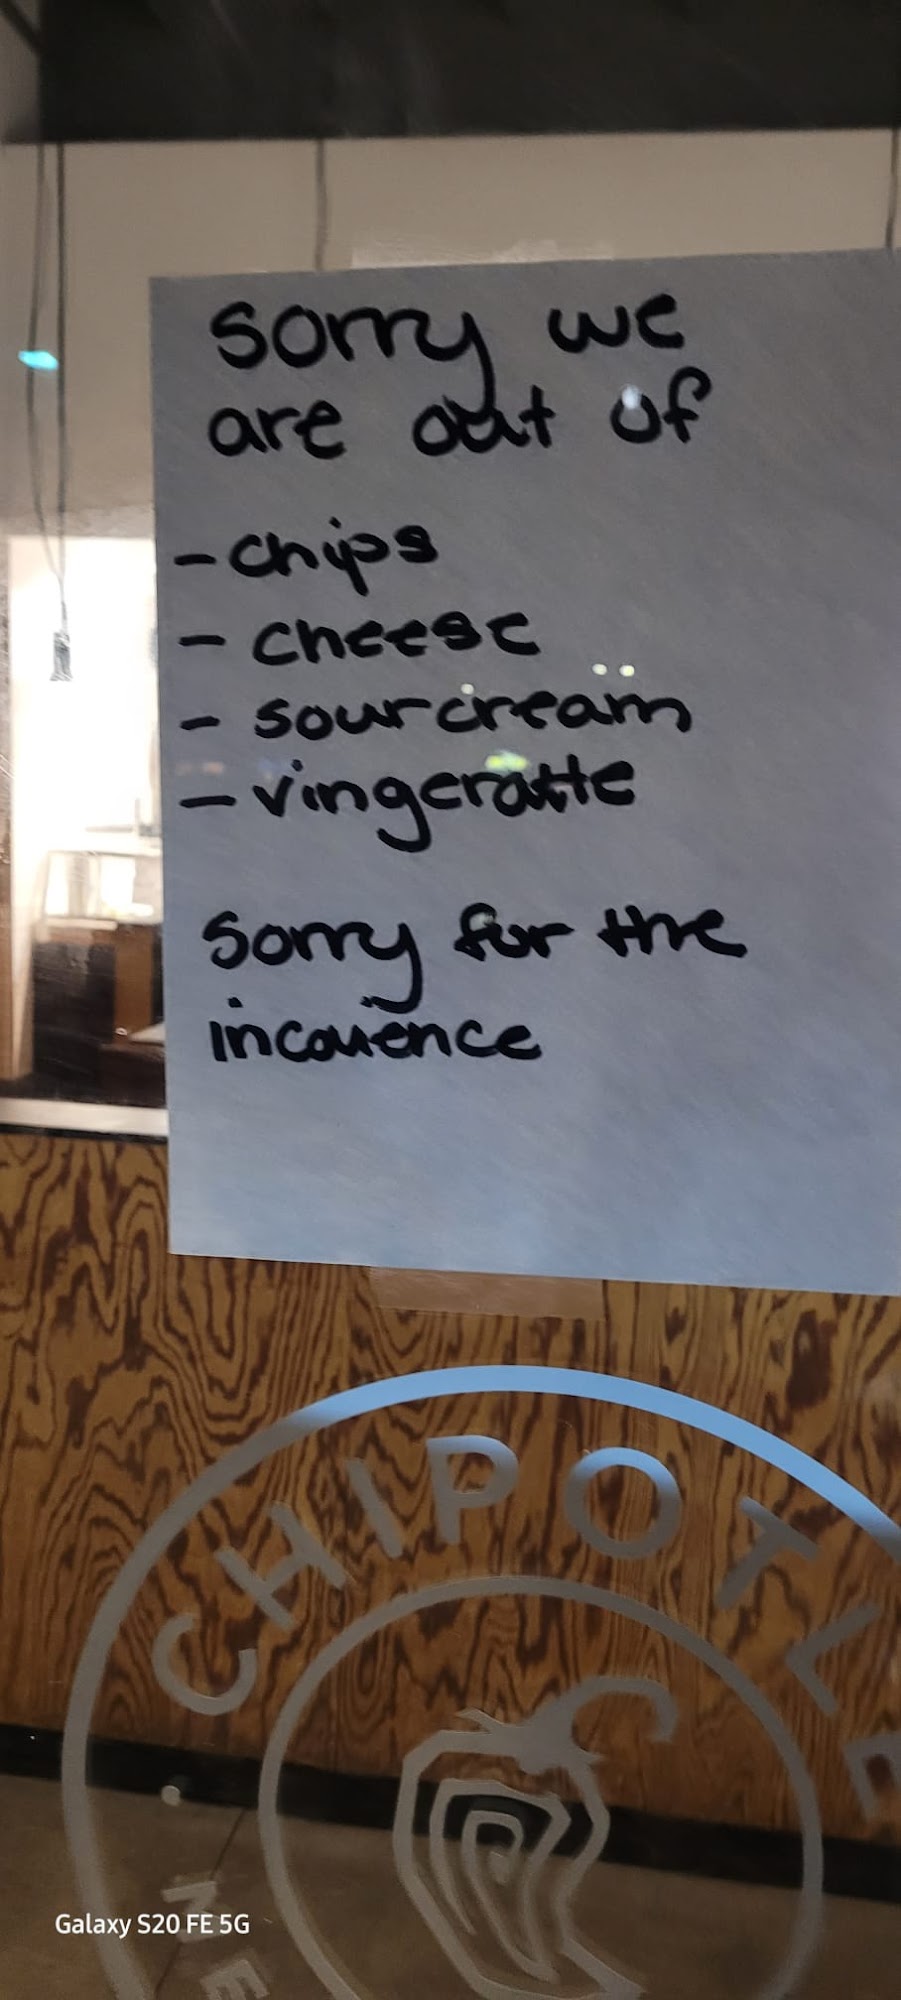 Sorry we
are out of
- chips
- cheese
- sourcream
- vingeratte
Sorry for the
incouence
CHIPOTLE
ME
Galaxy S20 FE 5G